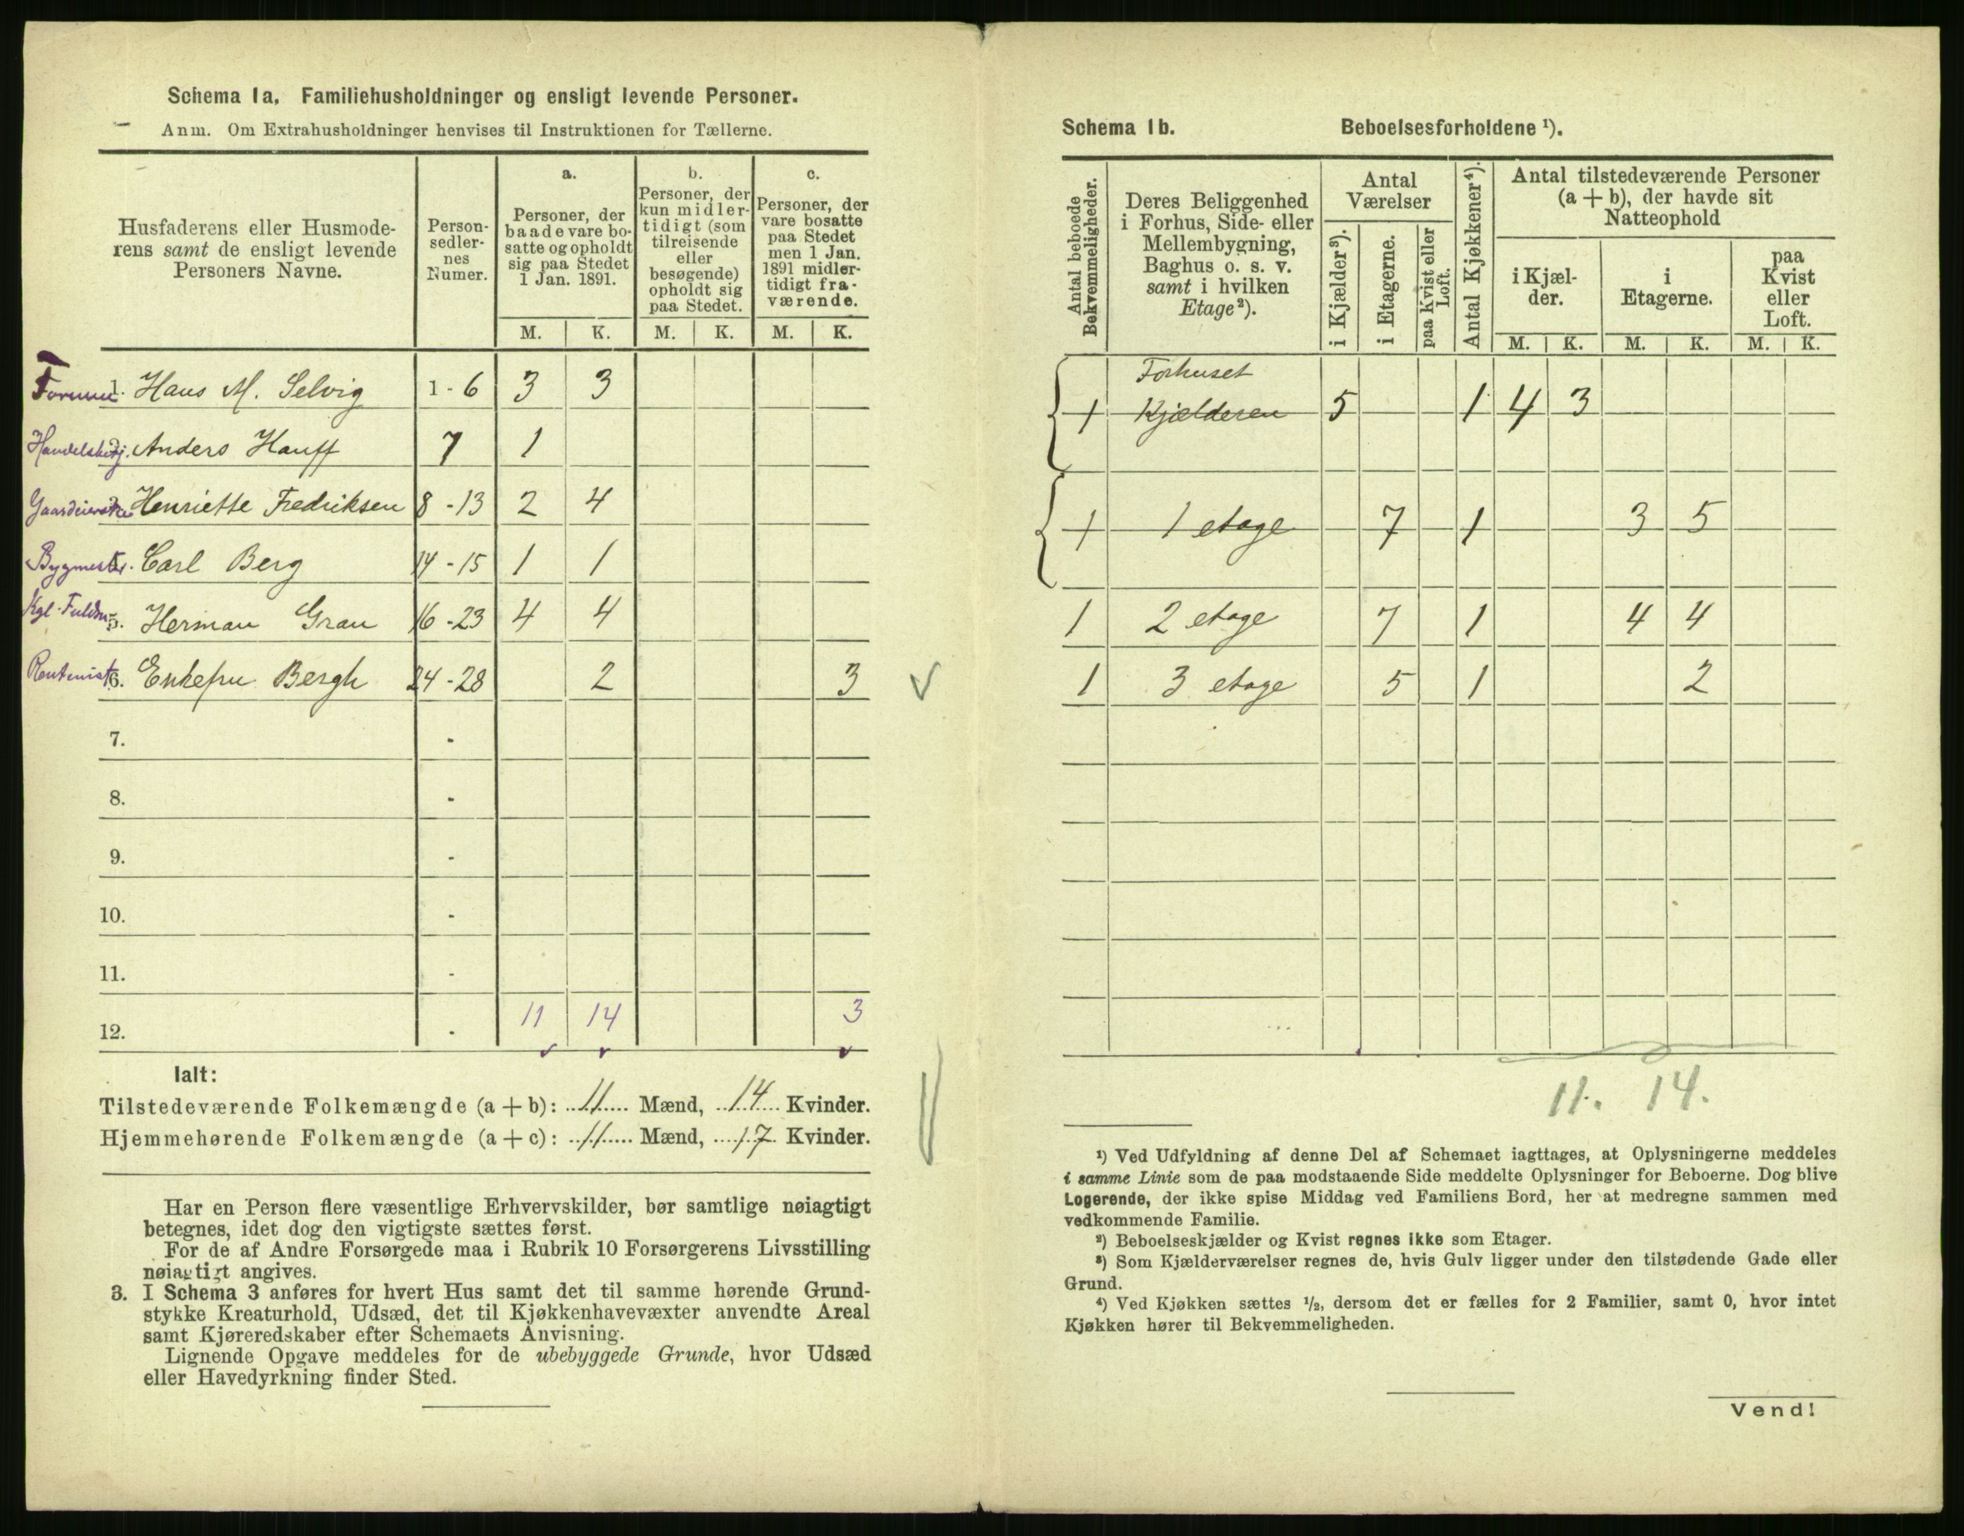 Schema 1a. Familiehusholdninger og ensligt levende Personer.
Anm. Om Extrahusholdninger henvises til Instruktionen for Tællerne.
Husfaderens eller Husmode-
rens samt de ensligt levende
Personers Navne.
Person-
sedler-
nes
Numer.
a.
Personer, der
baade vare bo-
satte og opholdt
sig paa Stedet
1 Jan. 1891.
b.
Personer, der
kun midler-
tidigt (som
tilreisende
eller
besøgende)
opholdt sig
paa Stedet.
c.
Personer, der
vare bosatte
paa Stedet
men 1 Jan.
1891 midler-
tidigt fra-
værende.
M. K. M. K. M. K.
1. Hans M. Selvig 1 - 6 3 3
Handelsbetj. Anders Hauff 7 1
Henriette Fredriksen 8 - 13 2 4
Bygmester. Carl Berg 14 - 15 1 1
Kgl. Fuldm. 5. Herman Gran 16 - 23 4 4
Rentenist 6. Enkefru Bergh 24 - 28 2 3
7. -
8. -
9. -
10. -
11. -
12. - 11 14 3
Ialt:
Tilstedeværende Folkemængde (a + b): 11 Mænd, 14 Kvinder.
Hjemmehørende Folkemængde (a + c): 11 Mænd, 17 Kvinder.
Har en Person flere væsentlige Erhvervskilder, bør samtlige nøiagtigt
betegnes, idet dog den vigtigste sættes først.
For de af Andre Forsørgede maa i Rubrik 10 Forsørgerens Livsstilling
nøiagtigt angives.
3. I Schema 3 anføres for hvert Hus samt det til samme hørende Grund-
stykke Kreaturhold, Udsæd, det til Kjøkkenhavevæxter anvendte Areal
samt Kjøreredskaber efter Schemaets Anvisning.
Lignende Opgave meddeles for de ubebyggede Grunde, hvor Udsæd
eller Havedyrkning finder Sted.
Schema 1b. Beboelsesforholdene ¹).
Antal beboede
Bekvemmeligheder.
Deres Beliggenhed
i Forhus, Side- eller
Mellembygning,
Baghus o. s. v.
samt i hvilken
Etage²).
Antal
Værelser
i Kjælder³).
i Etagerne.
paa Kvist eller
Loft.
Antal Kjøkkener⁴).
Antal tilstedeværende Personer
(a + b), der havde sit
Natteophold
i Kjæl-
der.
i
Etagerne.
paa
Kvist
eller
Loft.
M. K. M. K. M. K.
Forhuset
1 Kjælderen 5 1 4 3
1 1 etage 7 1 3 5
1 2 etage 7 1 4 4
1 3 etage 5 1 2
11. 14.
¹) Ved Udfyldning af denne Del af Schemaet iagttages, at Oplysningerne meddeles
i samme Linie som de paa modstaaende Side meddelte Oplysninger for Beboerne. Dog blive
Logerende, der ikke spise Middag ved Familiens Bord, her at medregne sammen med
vedkommende Familie.
²) Beboelseskjælder og Kvist regnes ikke som Etager.
³) Som Kjælderværelser regnes de, hvis Gulv ligger under den tilstødende Gade eller
Grund.
⁴) Ved Kjøkken sættes ½, dersom det er fælles for 2 Familier, samt 0, hvor intet
Kjøkken hører til Bekvemmeligheden.
Vend!